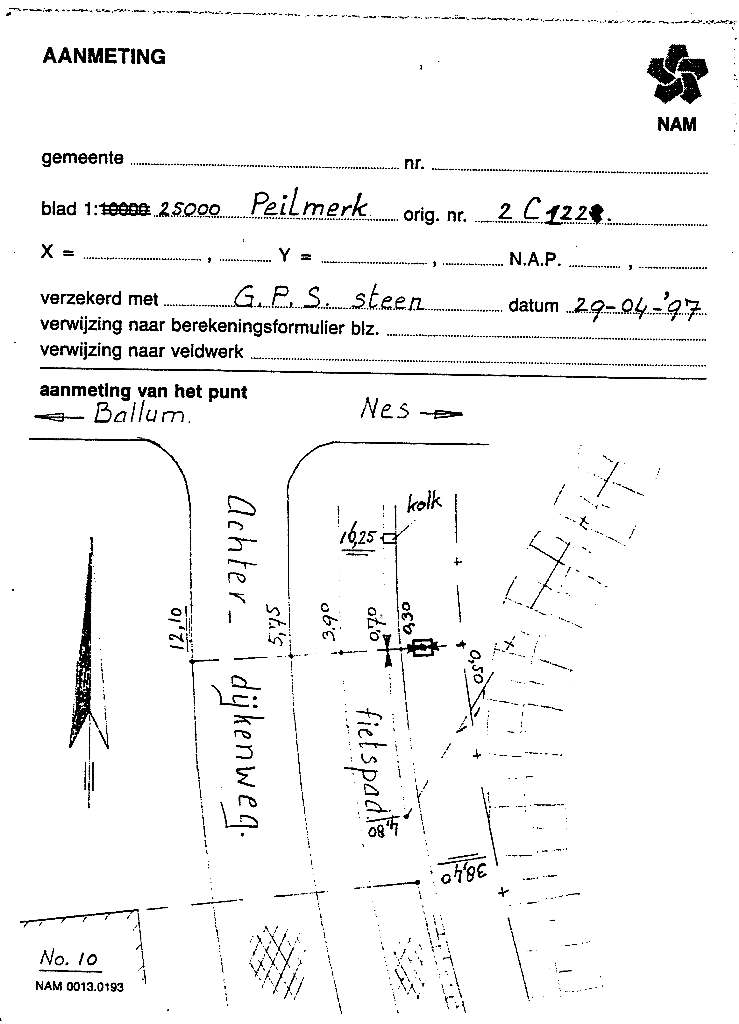 AANMETING
NAM
gemeente nr.
blad 1:10000 25000 Peilmerk orig. nr. 2 C 1228.
X = , Y = , N.A.P. ,
verzekerd met G.P.S. steen datum 29-04-'97
verwijzing naar berekeningsformulier blz.
verwijzing naar veldwerk
aanmeting van het punt
Ballum. Nes
kolk
16,25
Achter-
dijkenweg.
12,10
5,45
3,90
0,70
0,30
0,50
fietspad
4,80
38,40
No. 10
NAM 0013.0193